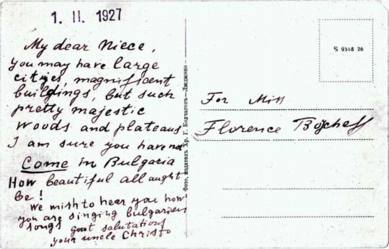 1. II. 1927
My dear Niece,
you may have large
cityes, magnificent
buildings, but such
pretty majestic
woods and plateaus
I am sure you have not
Come in Bulgaria
How beautiful all aught
be!
We wish to hear you how
you are singing bulgarian
songs goot salutations
your uncle Christo
For Miss
Florence